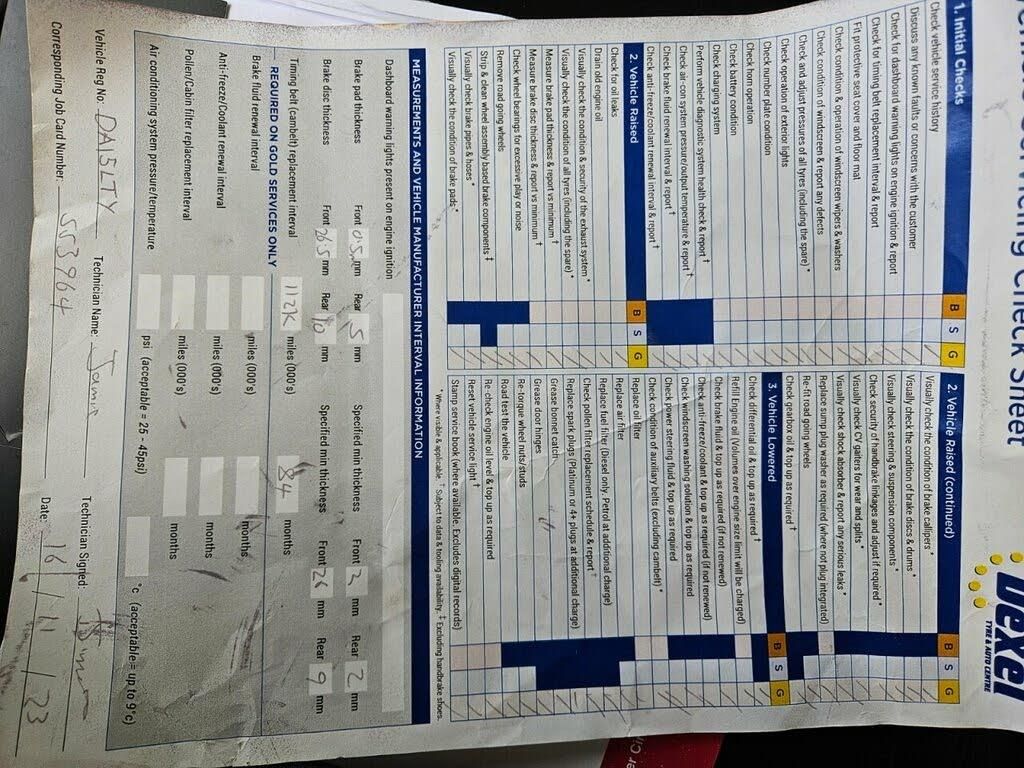 Servicing Check Sheet
DeXel
TYRE & AUTO CENTRE
1. Initial Checks
B S G
Check vehicle service history
Discuss any known faults or concerns with the customer
Check for dashboard warning lights on engine ignition & report
Check for timing belt replacement interval & report
Fit protective seat cover and floor mat
Check condition & operation of windscreen wipers & washers
Check condition of windscreen & report any defects
Check and adjust pressures of all tyres (including the spare) *
Check operation of exterior lights
Check number plate condition
Check horn operation
Check battery condition
Check charging system
Perform vehicle diagnostic system health check & report †
Check air-con system pressure/output temperature & report †
Check brake fluid renewal interval & report †
Check anti-freeze/coolant renewal interval & report †
2. Vehicle Raised
B S G
Check for oil leaks
Drain old engine oil
Visually check the condition & security of the exhaust system *
Visually check the condition of all tyres (including the spare) *
Measure brake pad thickness & report vs minimum †
Measure brake disc thickness & report vs minimum †
Check wheel bearings for excessive play or noise
Remove road going wheels
Strip & clean wheel assembly based brake components ‡
Visually check brake pipes & hoses *
Visually check the condition of brake pads *
2. Vehicle Raised (continued)
B S G
Visually check the condition of brake callipers *
Visually check the condition of brake discs & drums *
Visually check steering & suspension components *
Check security of handbrake linkages and adjust if required *
Visually check CV gaiters for wear and splits *
Visually check shock absorber & report any serious leaks *
Replace sump plug washer as required (where not plug integrated)
Re-fit road going wheels
Check gearbox oil & top up as required †
3. Vehicle Lowered
B S G
Check differential oil & top up as required †
Refill Engine oil (Volumes over engine size limit will be charged)
Check brake fluid & top up as required (if not renewed)
Check anti-freeze/coolant & top up as required (if not renewed)
Check windscreen washing solution & top up as required
Check power steering fluid & top up as required
Check condition of auxiliary belts (excluding cambelt) *
Replace oil filter
Replace air filter
Replace fuel filter (Diesel only. Petrol at additional charge)
Check pollen filter replacement schedule & report †
Replace spark plugs (Platinum or 4+ plugs at additional charge)
Grease bonnet catch
Grease door hinges
Re-torque wheel nuts/studs
Road test the vehicle
Re-check engine oil level & top up as required
Reset vehicle service light †
Stamp service book (where available. Excludes digital records)
* Where visible & applicable. † Subject to data & tooling availability. ‡ Excluding handbrake shoes.
MEASUREMENTS AND VEHICLE MANUFACTURER INTERVAL INFORMATION
Dashboard warning lights present on engine ignition
Brake pad thickness Front 0.5 mm Rear 5 mm Specified min thickness Front 2 mm Rear 2 mm
Brake disc thickness Front 26.5 mm Rear 10 mm Specified min thickness Front 26 mm Rear 9 mm
Timing belt (cambelt) replacement interval 112K miles (000's) 84 months
REQUIRED ON GOLD SERVICES ONLY
Brake fluid renewal interval miles (000's) months
Anti-freeze/Coolant renewal interval miles (000's) months
Pollen/Cabin filter replacement interval miles (000's) months
Air conditioning system pressure/temperature psi (acceptable = 25 - 45psi) °c (acceptable = up to 9°c)
Vehicle Reg No: DA15LTY Technician Name: Technician Signed:
Corresponding Job Card Number: 553964 Date: 16 / 11 / 23